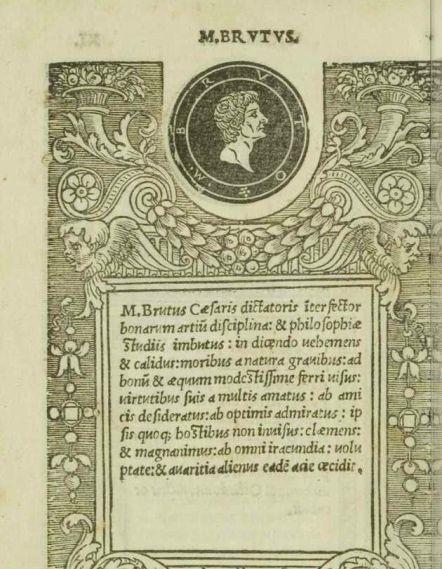 M.BRVTVS.
M. BRVTO
M.Brutus Cæsaris dictatoris īterfector
bonarum artiū disciplina: & philosophiæ
studiis imbutus : in dicendo uehemens
& calidus: moribus a natura grauibus: ad
bonū & æquum modestissime ferri uisus:
uirtutibus suis a multis amatus : ab ami
cis desideratus: ab optimis admiratus : ip
sis quoq; hostibus non inuisus: clæmens:
& magnanimus: ab omni iracundia : uolu
ptate: & auaritia alienus eadē acie cecidit.